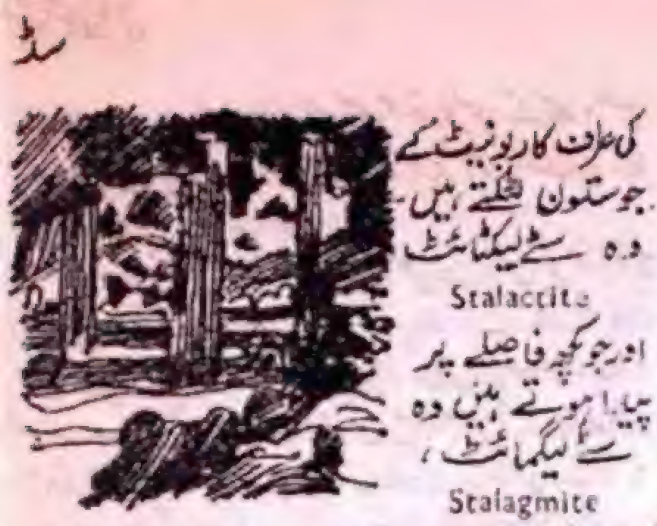 سڈ
کی طرف کاربونیٹ کے
جو ستون لٹکتے ہیں۔
وہ سٹےلیکٹائٹ
Stalactite
اور جو کچھ فاصلے پر
پیدا ہوتے ہیں وہ
سٹےلیگمائٹ ،
Stalagmite